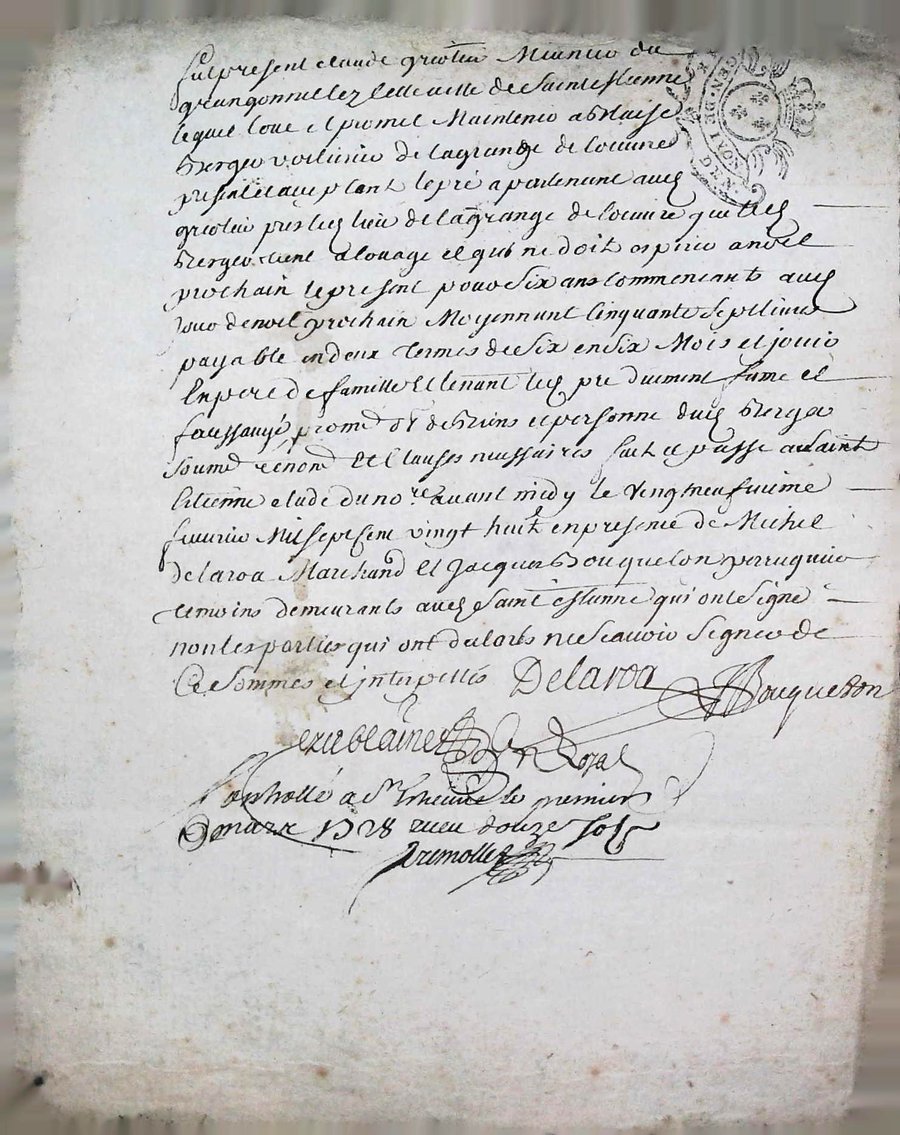 fut present claude griotier Meunier du
grangonnet lez ladite ville de Saint Estienne
lequel loue et promet Maintenir a Blaise
Berger voiturier de la grange de louure
present et aceptant le pré apartenant aud
griotier pres led lieu de la grange de louure que led
Berger tient a louage et qui ne doit expirer a noel
prochain le present pour six ans commencants aud
jour de noel prochain Moyennant Cinquante sept livres
payable en deux termes de six en six Mois et jouir
en pere de famille et tenant led pré duement fumé et
promet obl de biens et personne dud Berger
soumet renonc et clauses necessaires fait et passé aud Saint
Etienne etude du nore avant midy le vingt neuf
feuurier Mil sept cent vingt huit en presence de Michel
delaroa Marchand et Jacques Bouqueton perruquier
temoins demeurants aud Saint estienne qui ont signé
non les parties qui ont declaré ne scauoir signer de
ce sommés et interpellés Delaroa JBouqueton
Royal
Controllé a St Etienne le premier
mars 1728 receu douze sols
Tremollet
GEN. D LION